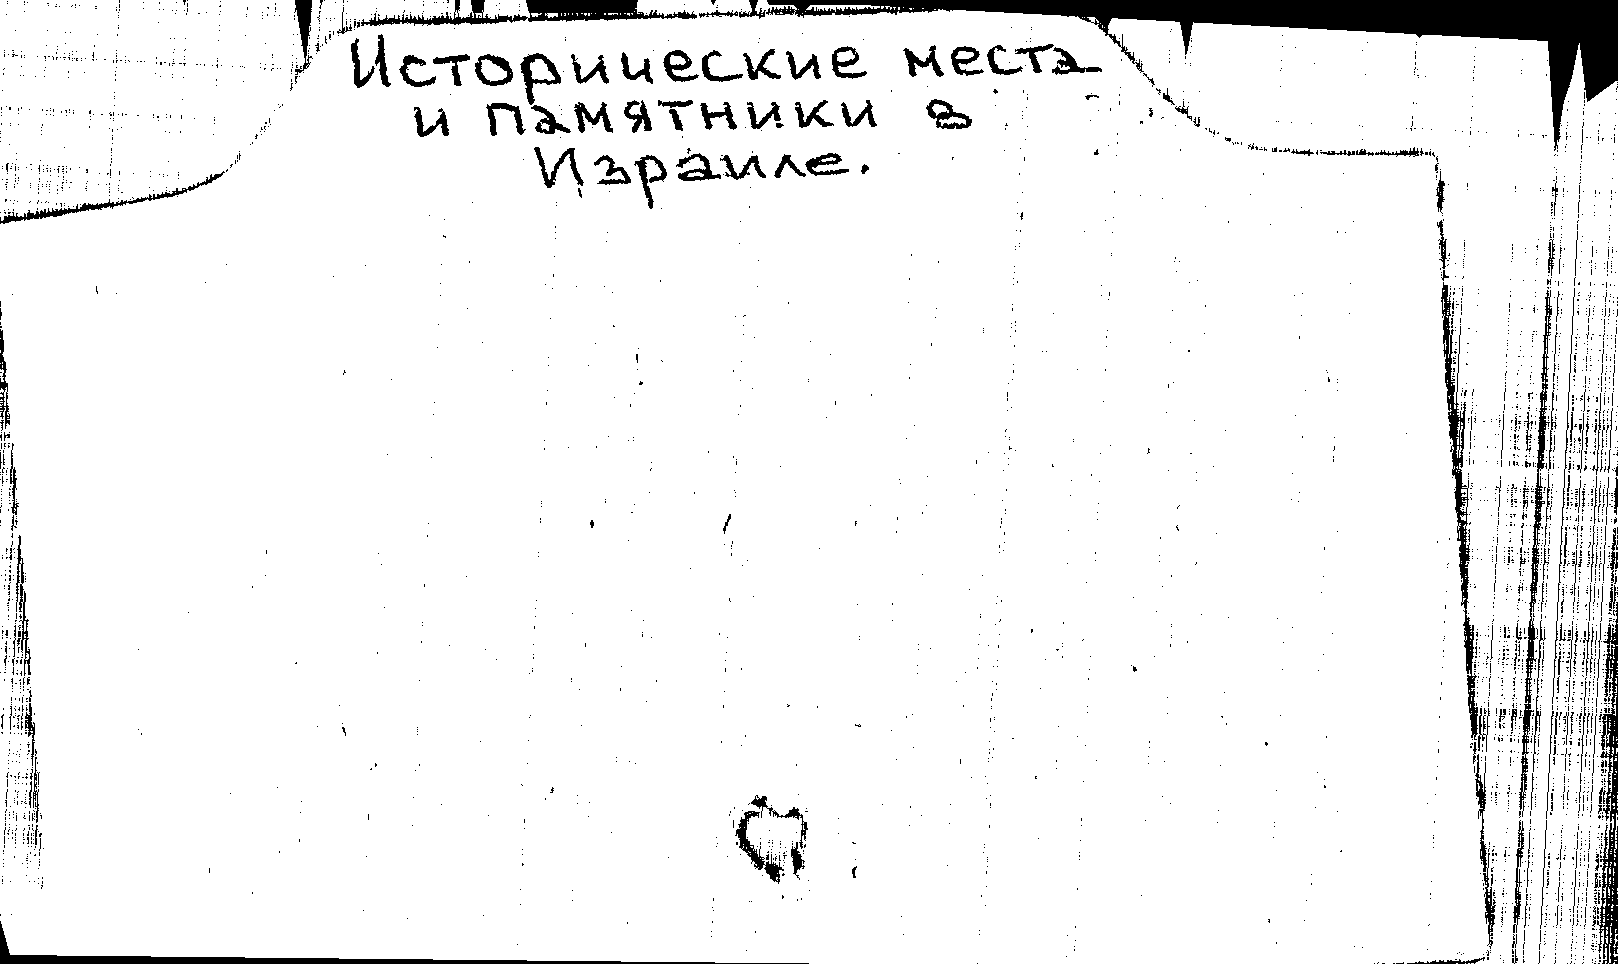 Исторические места
и памятники в
Израиле.